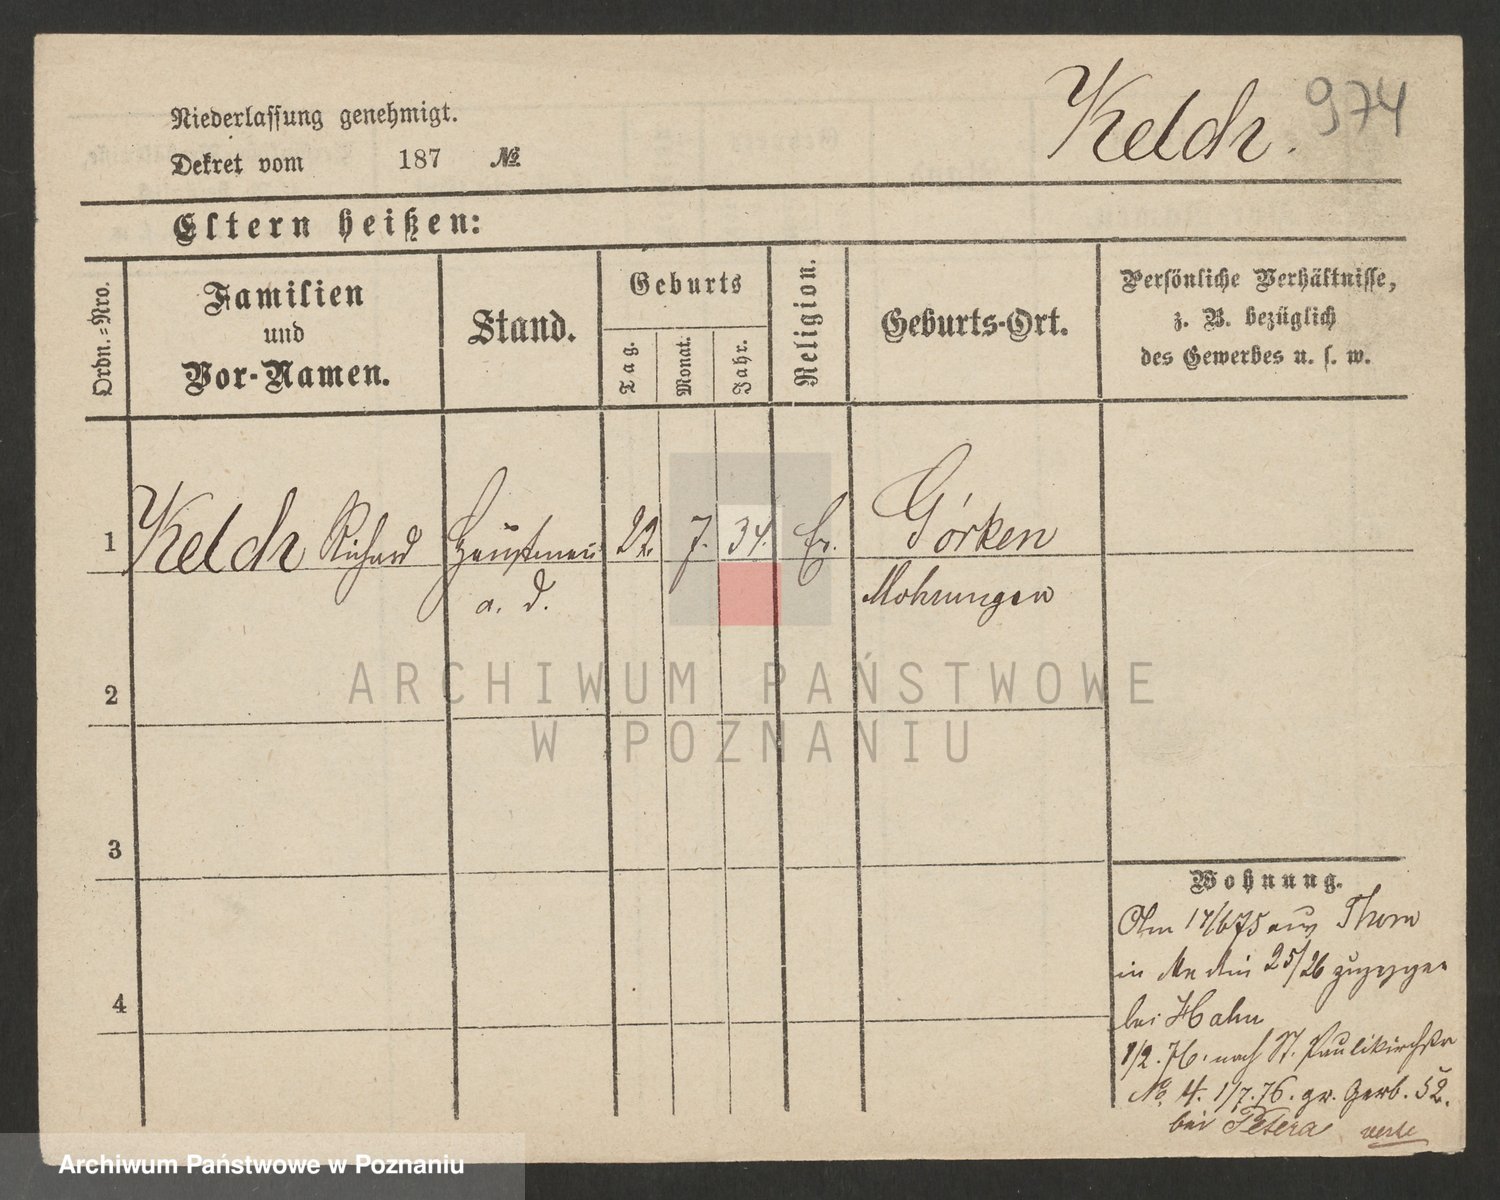 Kelch. 974
Niederlassung genehmigt.
Dekret vom 187 №
Eltern heißen:
Ordn.=Nro.
Familien
und
Vor-Namen.
Stand.
Geburts
Tag.
Monat.
Jahr.
Religion.
Geburts-Ort.
Persönliche Verhältnisse,
z. B. bezüglich
des Gewerbes u. s. w.
1 Kelch Richard Hauptmann 22. 7. 34. Ev. Görken
a. D. Mohrungen
2
3
4
Wohnung.
Am 17/6 75 aus Thorn
in 25/26 zugezogen
bei Hahn
1/2. 76. nach St. Paulikirchstr
No. 4. 1/7. 76. gr. Gerb. 52.
bei Petera verte
ARCHIWUM PAŃSTWOWE
W POZNANIU
Archiwum Państwowe w Poznaniu